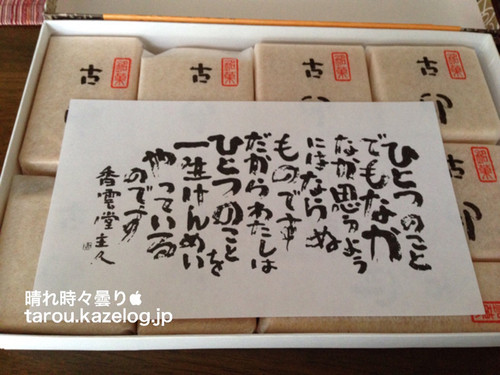 古
銘菓
古
銘菓
古
銘菓
ひとつのこと
でもなか
なか思うよう
にはならぬ
ものです
だからわたしは
ひとつのことを
一生けんめい
やっている
のです
香雲堂主人
晴れ時々曇り
tarou.kazelog.jp